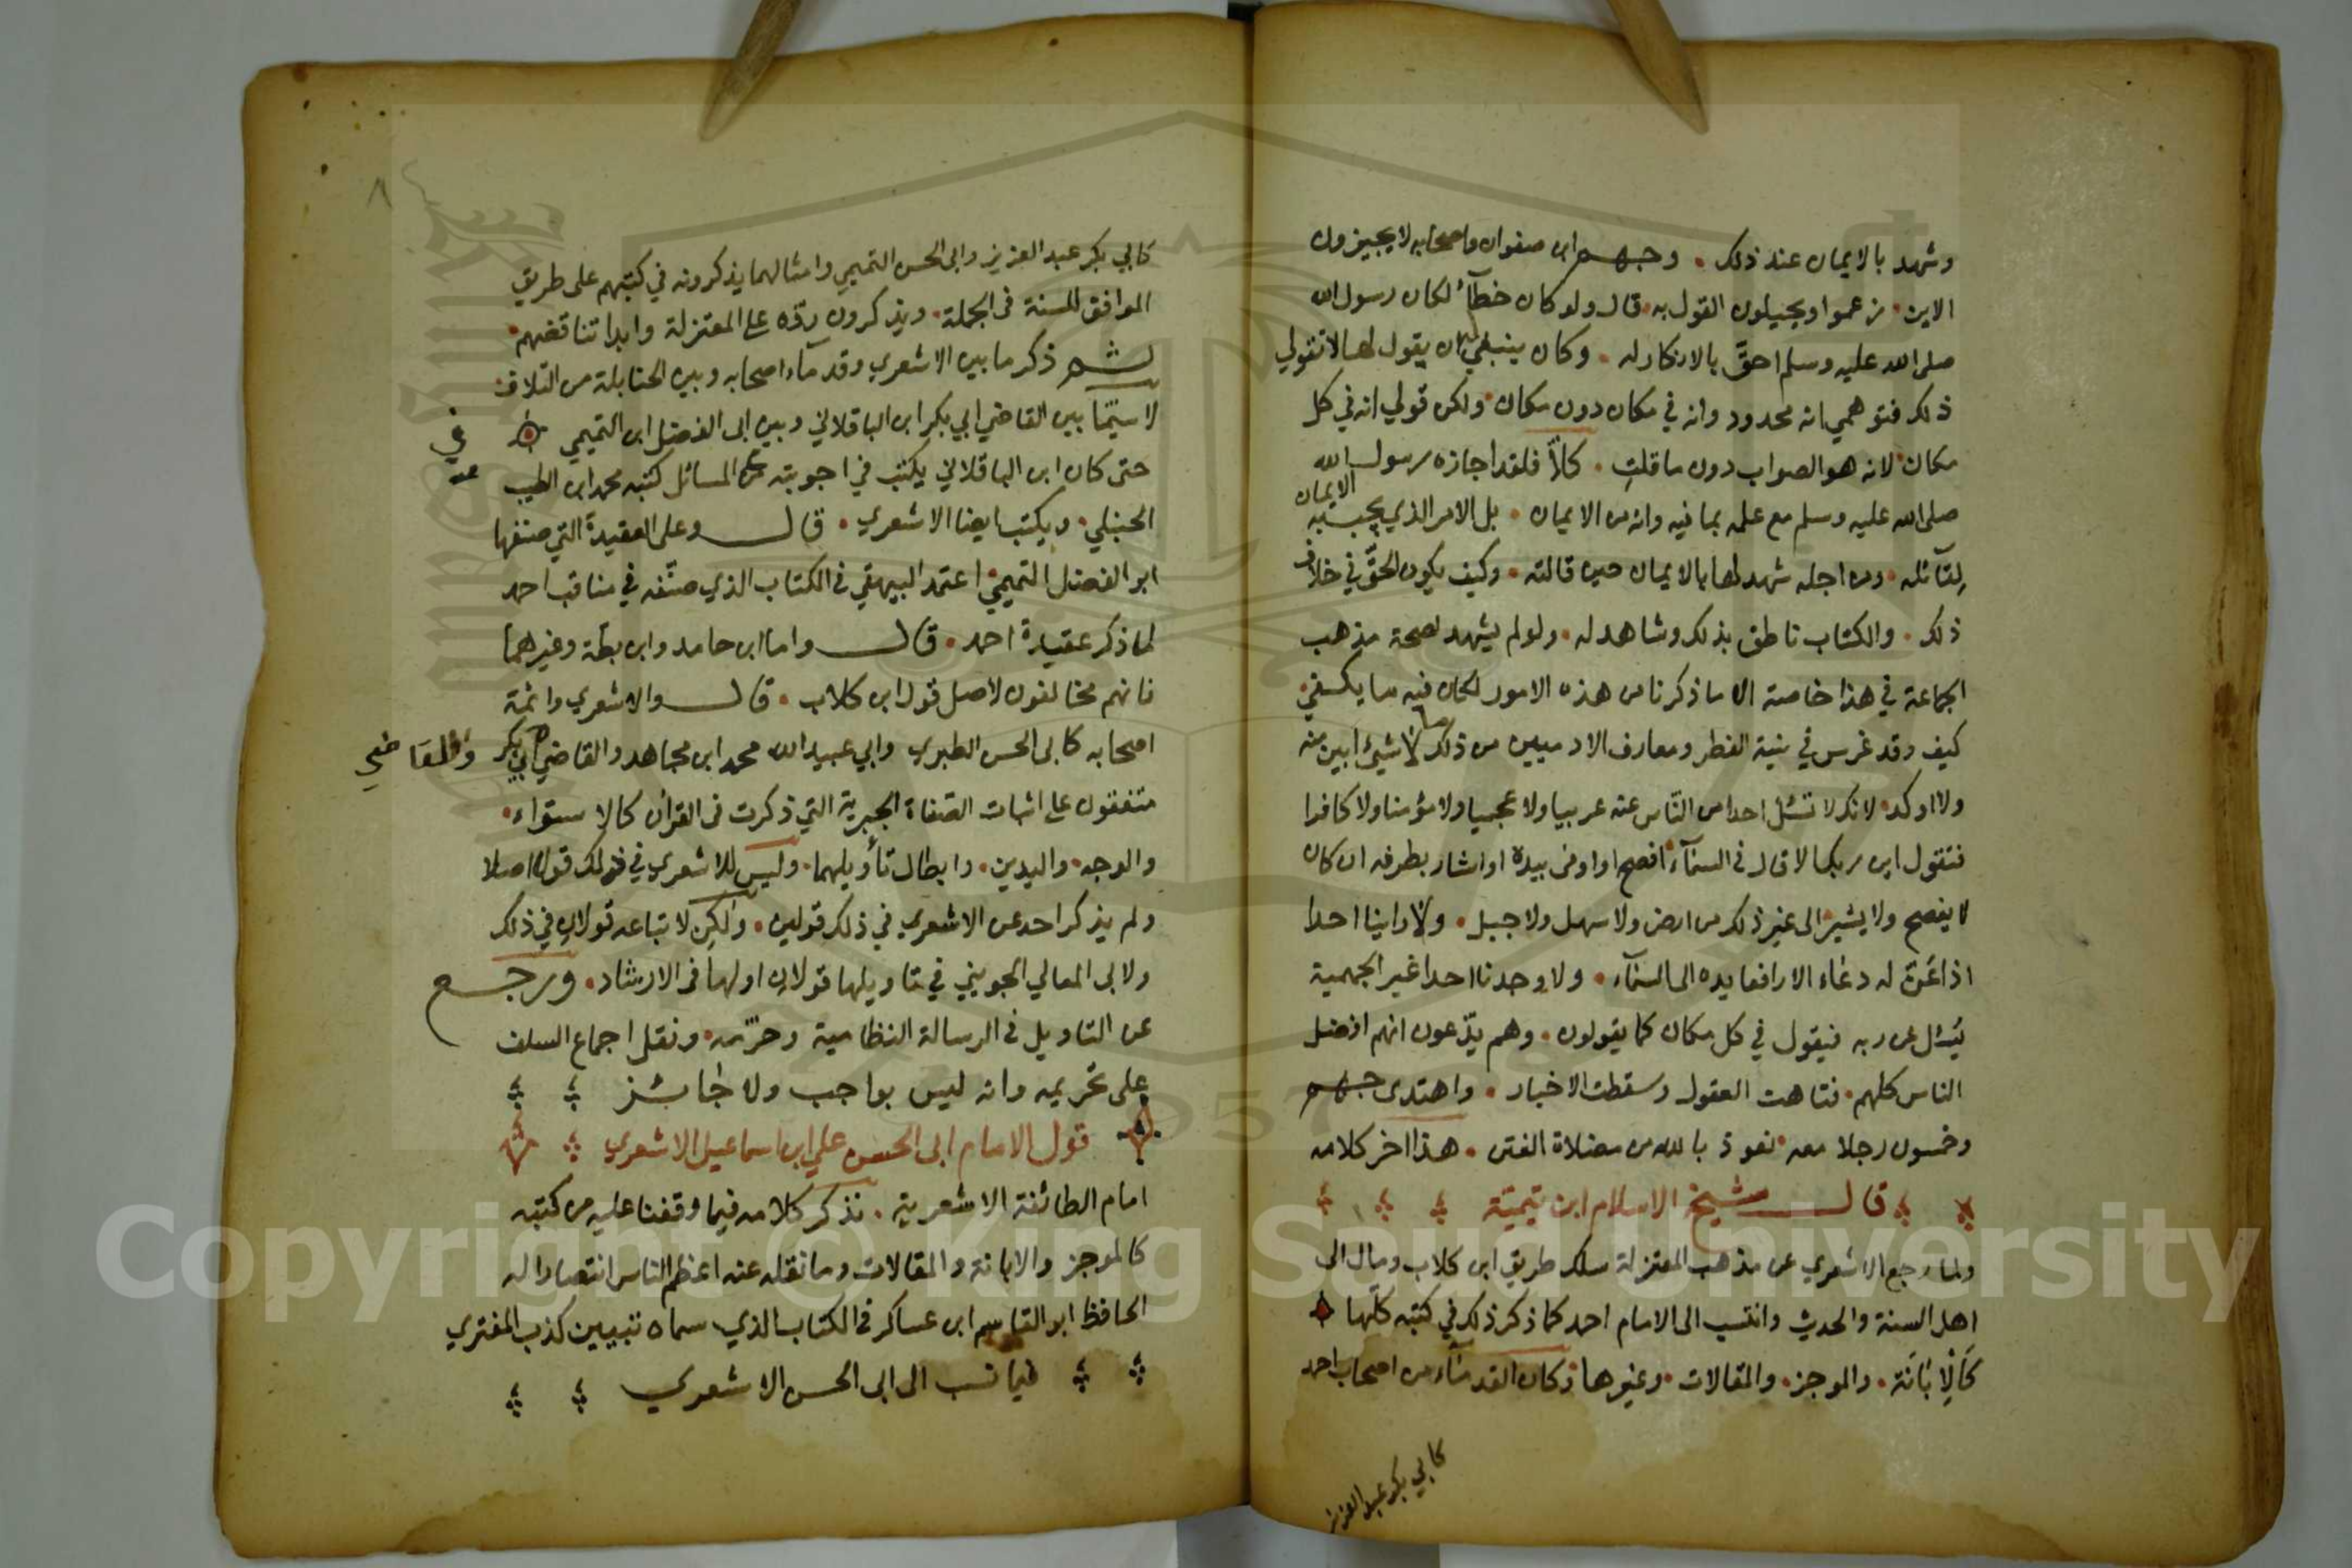 وشهد بالايمان عند ذلك . وجهم ابن صفوان واصحابه لا يجيزون
الاين . زعموا ويحيلون القول به . قال ولو كان خطآء لكان رسول الله
صلى الله عليه وسلم احقّ بالانكار له . وكان ينبغي ان يقول لها لا تقولي
ذلك فتوهمي انه محدود وانه في مكان دون مكان ولكن قولي انه في كل
مكان لانه هو الصواب دون ما قلتِ . كلاّ فلقد اجازه رسول الله
صلى الله عليه وسلم مع علمه بما فيه وانه من الايمان . بل الامر الذي يجب به الايمان
لقآئله . ومن اجله شهد لها بالايمان حين قالته . وكيف يكون الحقّ في خلاف
ذلك . والكتاب ناطق بذلك وشاهد له . ولو لم يشهد لصحة مذهب
الجماعة في هذا خاصة الا ما ذكرنا من هذه الامور لكان فيه ما يكفي
كيف وقد غرس في بنية الفطر ومعارف الادميين من ذلك ما لا شيئ ابين منه
ولا اوكد لانك لا تسئل احدا من النّاس عنه عربيا ولا عجميا ولا مؤمنا ولا كافرا
فتقول اين ربك الا قال في السمآء افصح او اومى بيده او اشار بطرفه ان كان
لا يفصح ولا يشير الى غير ذلك من ارض ولا سهل ولا جبل . ولا راينا احدا
اذا عَنّ له دعاء الا رافعا يده الى السمآء . ولا وجدنا احدا غير الجهمية
يُسئل عن ربه فيقول في كل مكان كما يقولون . وهم يدّعون انهم افضل
الناس كلهم . فتاهت العقول وسقطت الاخبار . واهتدى جهم
وخمسون رجلا معه نعوذ بالله من مضلاة الفتن . هذا اخر كلامه
قال شيخ الاسلام ابن تيميّة
ولما رجع الاشعري عن مذهب المعتزلة سلك طريق ابن كلاب ومال الى
اهل السنة والحديث وانتسب الى الامام احمد كما ذكر ذلك في كتبه كلّها
كَالِابَانَة . والموجز . والمقالات . وغيرها وكان القدمآء من اصحاب احمد
كابي بكر عبد العزيز
٨
كابي بكر عبد العزيز وابى الحسن التميمي وامثالهما يذكرونه في كتبهم على طريق
الموافق للسنة فى الجملة . ويذكرون ردّه على المعتزلة وابدا تناقضهم .
ثم ذكر ما بين الاشعري وقدمآء اصحابه وبين الحنابلة من التلاف
لا سيّما بين القاضي ابي بكر ابن الباقلاني وبين ابى الفضل ابن التميمي
حتى كان ابن الباقلاني يكتب في اجوبته عن المسائل كتبه محمد ابن الطيب
الحنبلي . ويكتب ايضا الاشعري . قال وعلى العقيدة التي صنفها
ابو الفضل التميمي اعتمد البيهقي فى الكتاب الذي صنّفه في مناقب احمد
لما ذكر عقيدة احمد . قال واما ابن حامد وابن بطة وغيرهما
فانهم مخالفون لاصل قول ابن كلاب . قال والاشعري وائمة
اصحابه كابى الحسن الطبري وابي عبيد الله محمد ابن مجاهد والقاضي ابي بكر
والقاضي
متفقون على اثبات الصّفاة الخبرية التي ذكرت فى القرآن كالاستواء .
والوجه . واليدين . وابطال تأويلهما . وليس للاشعري في ذلك قولا اصلا
ولم يذكر احد عن الاشعري في ذلك قولين . ولكن لاتباعه قولان في ذلك
ولابى المعالي الجويني في تاويلها قولان اولها فى الارشاد . ورجع
عن التاويل فى الرسالة النظامية وحرّمه . ونقل اجماع السلف
على تحريمه وانه ليس بواجب ولا جائز
قول الامام ابى الحسن علي ابن اسماعيل الاشعري
امام الطائفة الاشعرية . نذكر كلامه فيما وقفنا عليه من كتبه
كالموجز والابانة والمقالات وما نقله عنه اعظم الناس انتصارا له
الحافظ ابو القاسم ابن عساكر فى الكتاب الذي سماه تبيين كذب المفتري
فيما نسب الى ابى الحسن الاشعري
Copyright © King Saud University
1957